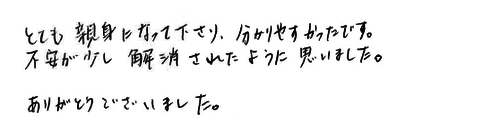 とても親身になって下さり、分かりやすかったです。
不安が少し解消されたように思いました。
ありがとうございました。